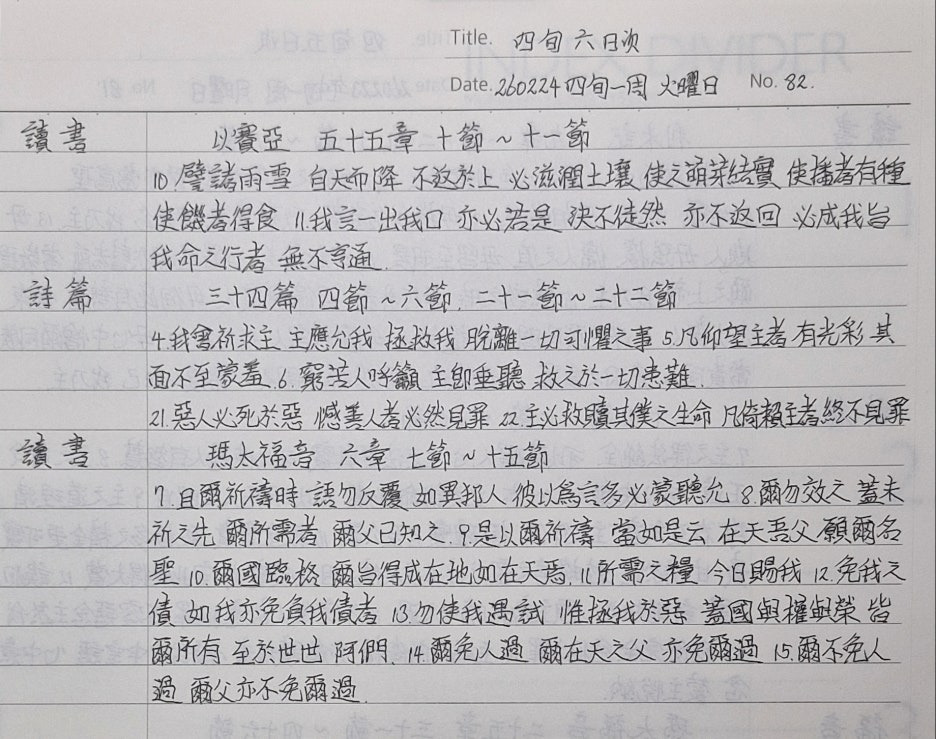 Title. 四旬 六日次
Date. 260224 四旬一周 火曜日 No. 82.
讀書 以賽亞 五十五章 十節 ~ 十一節
10 譬諸雨雪 自天而降 不返於上 必滋潤土壤 使之萌芽結實 使播者有種
使饑者得食 11.我言一出我口 亦必若是 決不徒然 亦不返回 必成我旨
我命之行者 無不亨通.
詩篇 三十四篇 四節 ~ 六節. 二十一節 ~ 二十二節
4.我曾祈求主 主應允我 拯救我 脫離一切可懼之事 5.凡仰望主者 有光彩 其
面不至蒙羞. 6. 窮苦人呼籲 主卽垂聽 救之於一切患難.
21.惡人必死於惡 憾善人者必然見罪 22.主必救贖其僕之生命 凡倚賴主者終不見罪
讀書 瑪太福音 六章 七節 ~ 十五節
7.且爾祈禱時 語勿反覆 如異邦人 彼以爲言多必蒙聽允 8.爾勿效之 蓋未
祈之先 爾所需者 爾父已知之. 9.是以爾祈禱 當如是云 在天吾父 願爾名
聖 10.爾國臨格 爾旨得成在地如在天焉. 11.所需之糧 今日賜我 12.免我之
債 如我亦免負我債者 13.勿使我遇試 惟拯我於惡 蓋國與權與榮 皆
爾所有 至於世世 阿們. 14.爾免人過 爾在天之父 亦免爾過 15.爾不免人
過 爾父亦不免爾過.